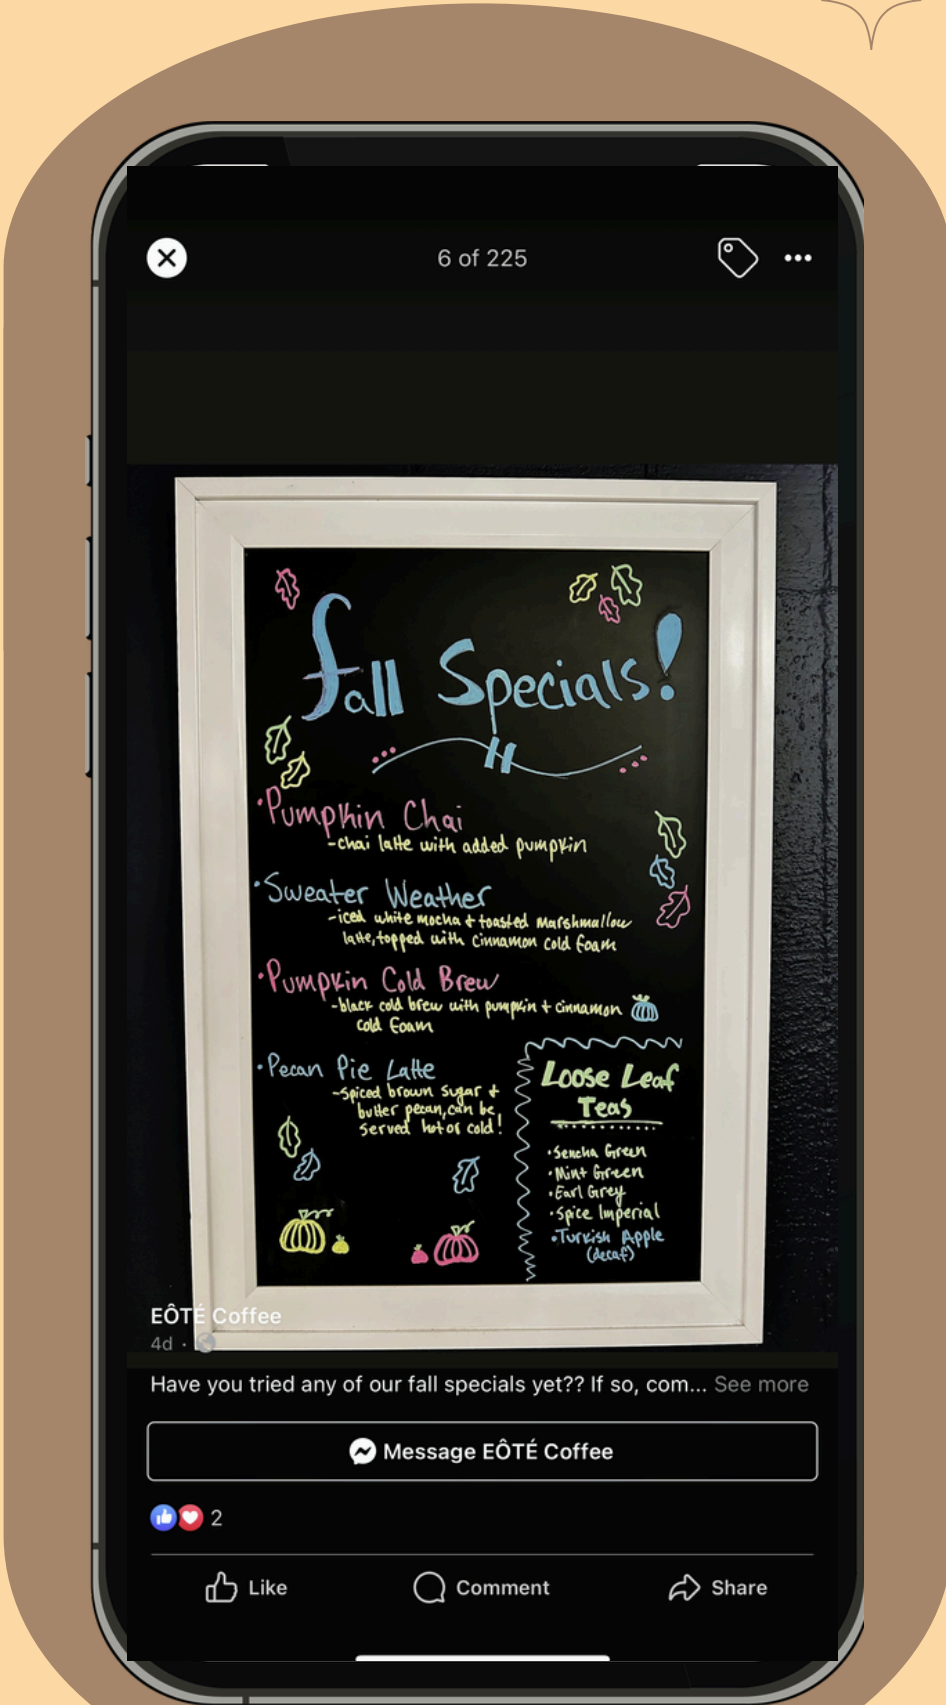 6 of 225
fall Specials!
•Pumpkin Chai
-chai latte with added pumpkin
•Sweater Weather
-iced white mocha + toasted marshmallow
latte, topped with cinnamon cold foam
•Pumpkin Cold Brew
-black cold brew with pumpkin + cinnamon
cold foam
•Pecan Pie Latte
-spiced brown sugar +
butter pecan, can be
served hot or cold!
Loose Leaf
Teas
•Sencha Green
•Mint Green
•Earl Grey
•Spice Imperial
•Turkish Apple
(decaf)
EÔTÉ Coffee
4d ·
Have you tried any of our fall specials yet?? If so, com... See more
Message EÔTÉ Coffee
2
Like
Comment
Share